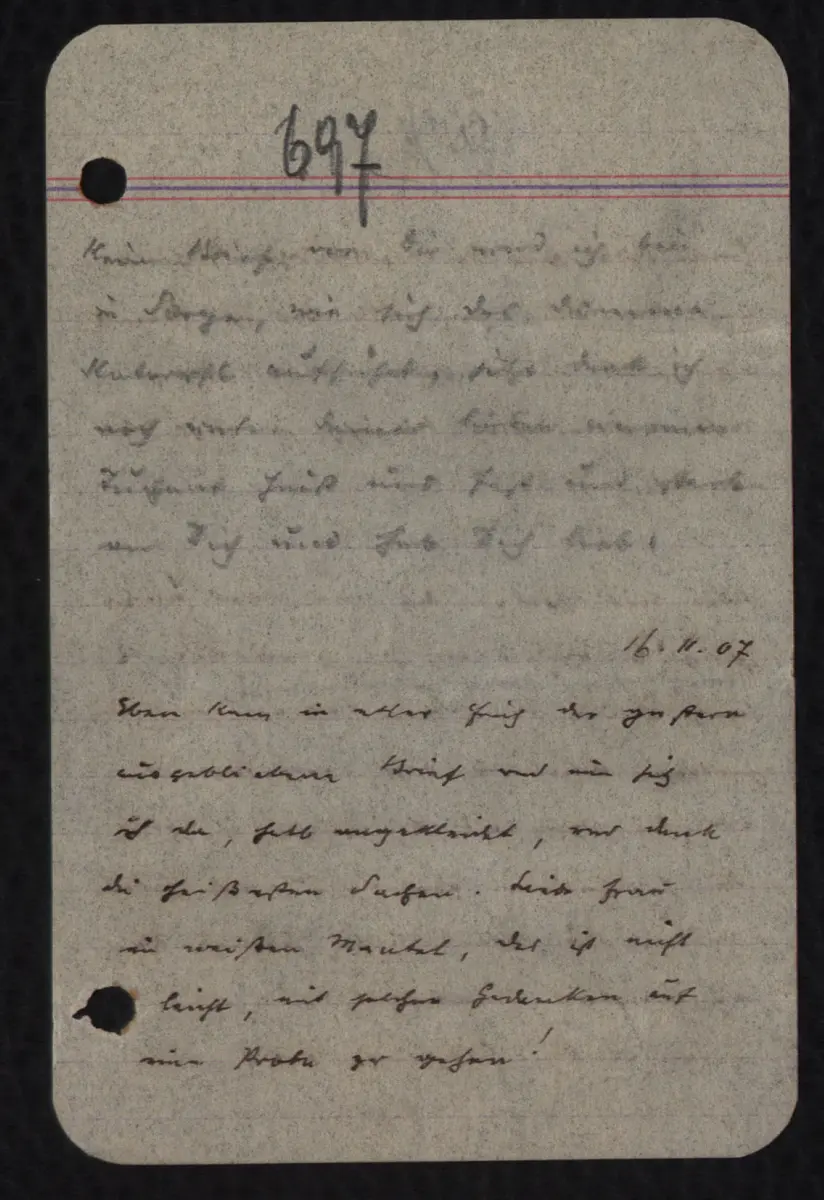 697
Kein Brief von Dir und ich bin
in Sorge, wie sich das dumme
aufführt, sehr denk ich
noch unter deiner
Tuchent heiß und fest und stark
an Dich und hab Dich lieb!
16. 11. 07
Eben kam in aller Früh der gestern
ausgebliebene Brief und nun sitz
ich da, halb angekleidet, und denk
die heißesten Sachen. Liebe Frau
im weißen Mantel, das ist nicht
leicht, mit solchen Gedanken auf
eine Probe zu gehen!